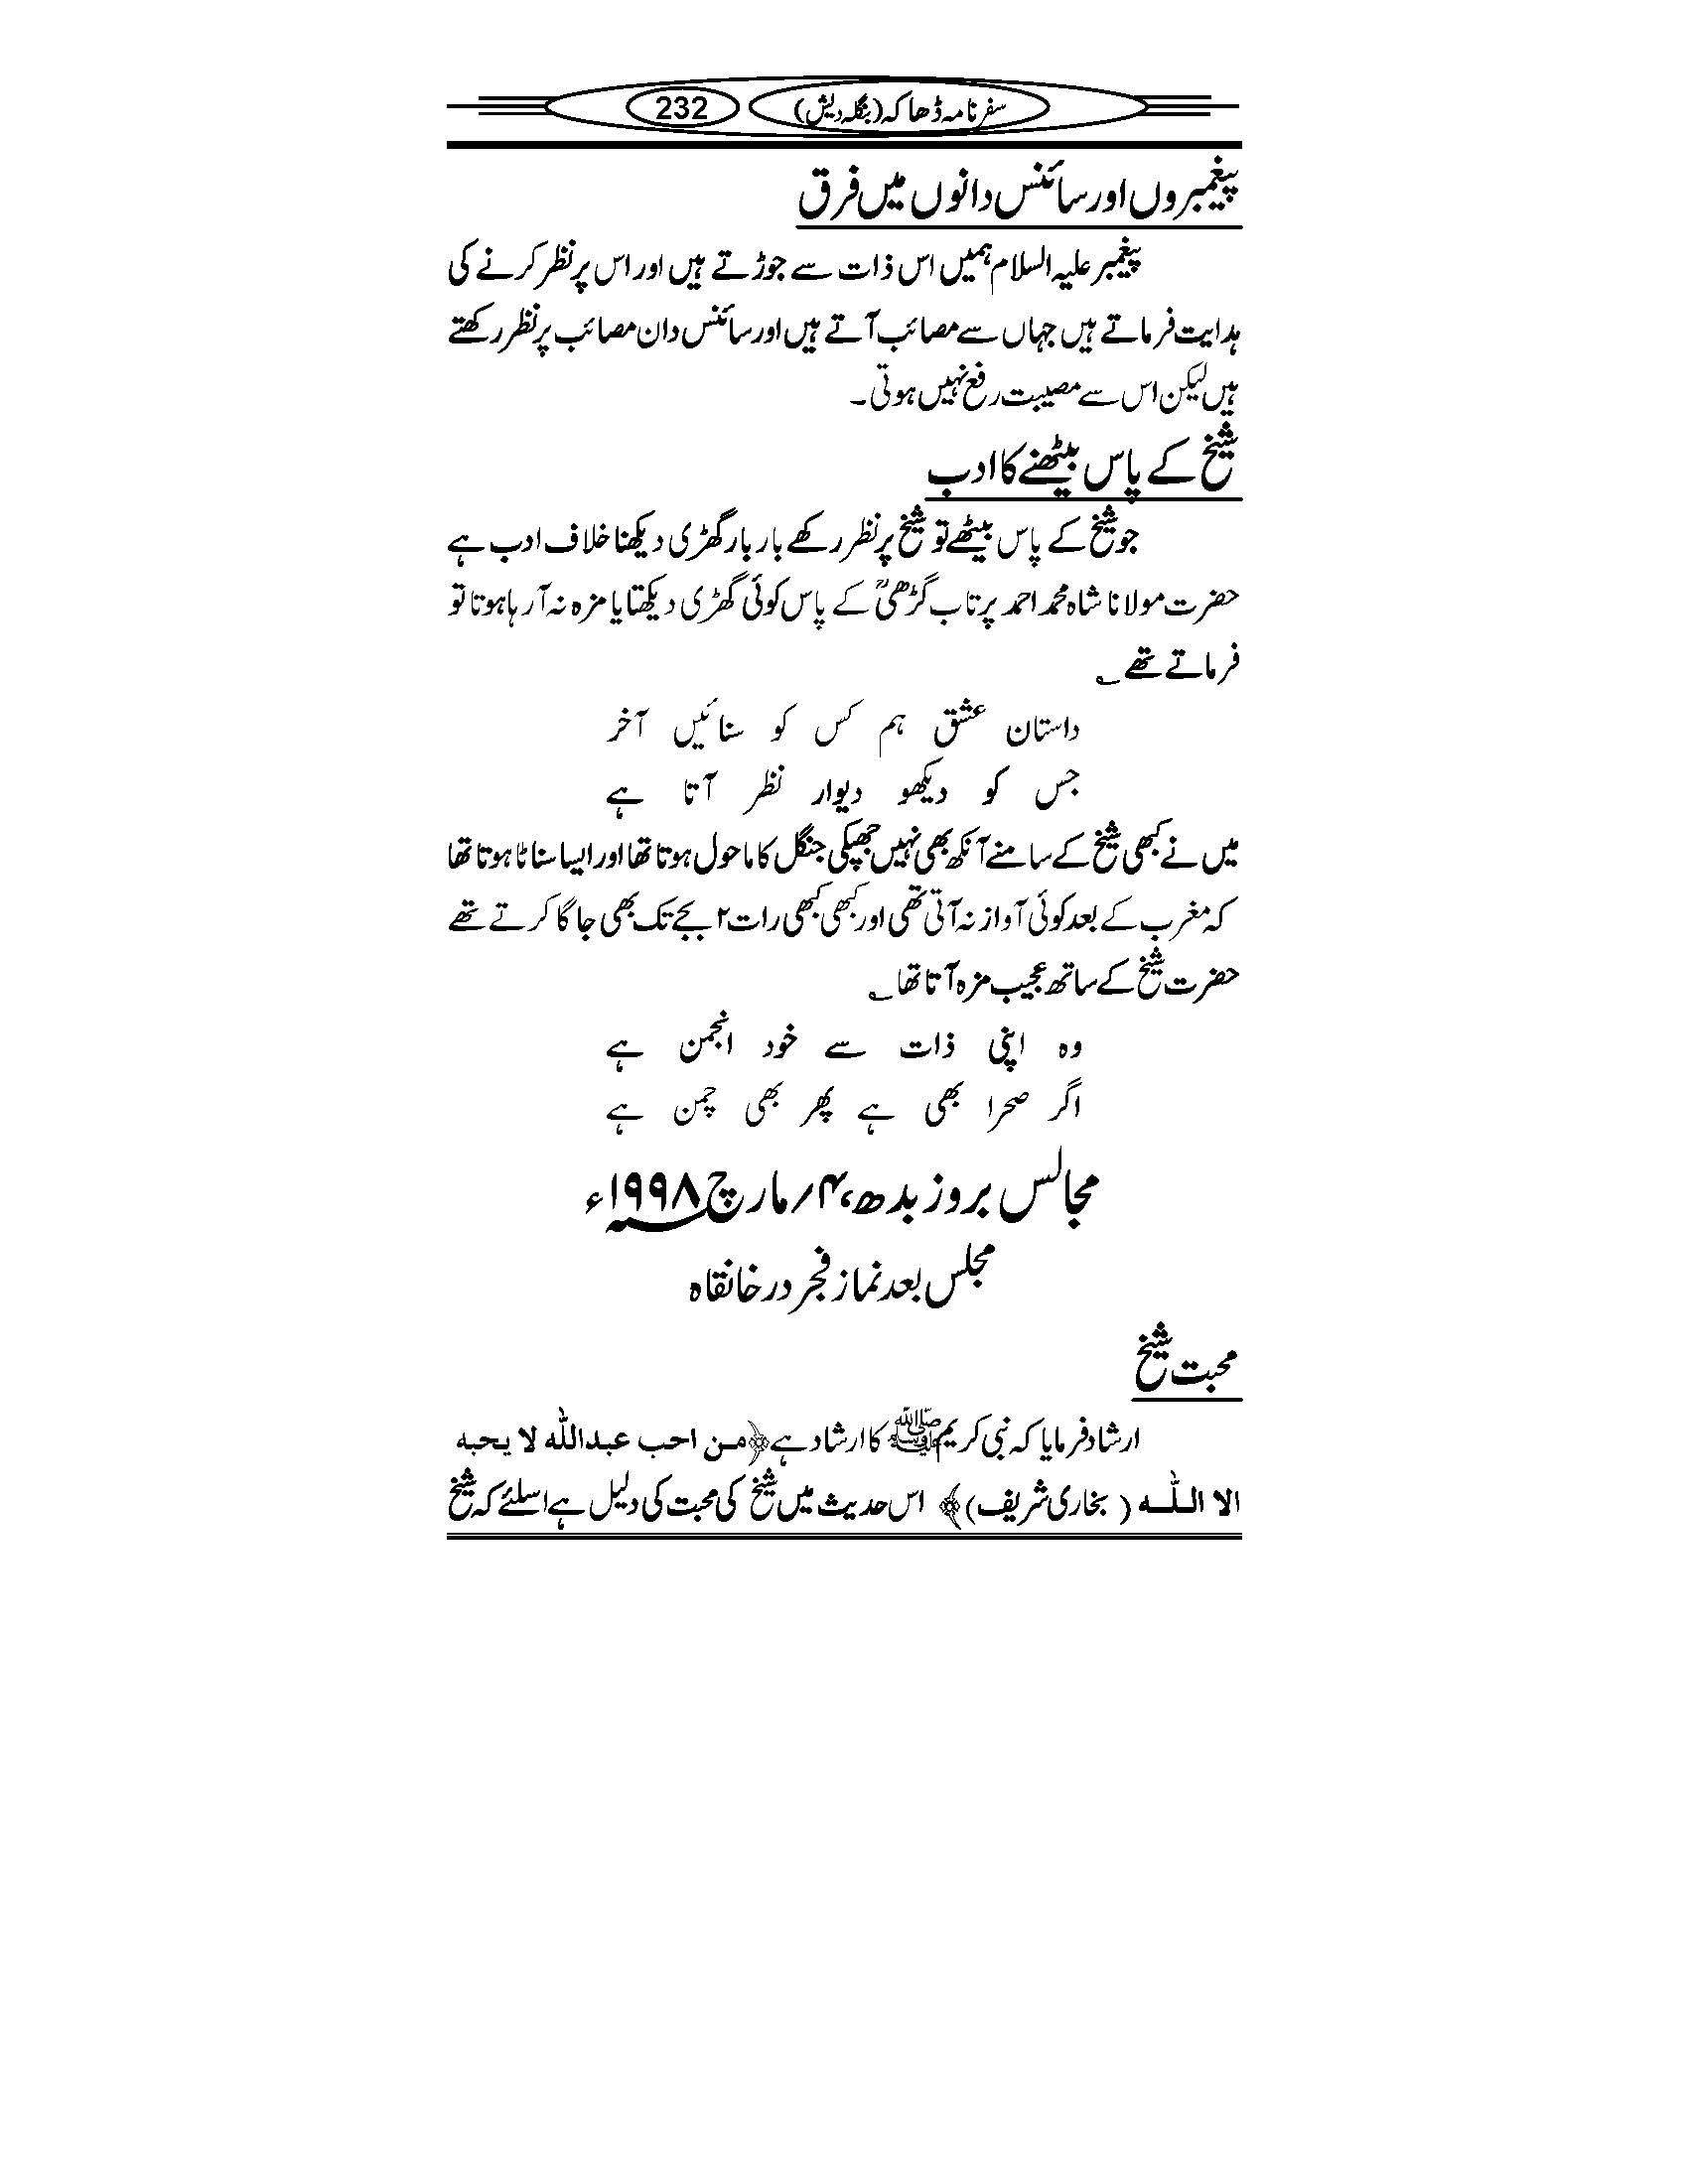 سفرنامہ ڈھاکہ (بنگلہ دیش) 232
پیغمبروں اور سائنس دانوں میں فرق
پیغمبر علیہ السلام ہمیں اس ذات سے جوڑتے ہیں اور اس پر نظر کرنے کی
ہدایت فرماتے ہیں جہاں سے مصائب آتے ہیں اور سائنس دان مصائب پر نظر رکھتے
ہیں لیکن اس سے مصیبت رفع نہیں ہوتی۔
شیخ کے پاس بیٹھنے کا ادب
جو شیخ کے پاس بیٹھے تو شیخ پر نظر رکھے بار بار گھڑی دیکھنا خلاف ادب ہے
حضرت مولانا شاہ محمد احمد پرتاب گڑھیؒ کے پاس کوئی گھڑی دیکھتا یا مزہ نہ آ رہا ہوتا تو
فرماتے تھے ؎
داستان عشق ہم کس کو سنائیں آخر
جس کو دیکھو دیوار نظر آتا ہے
میں نے کبھی شیخ کے سامنے آنکھ بھی نہیں جھپکی جنگل کا ماحول ہوتا تھا اور ایسا سناٹا ہوتا تھا
کہ مغرب کے بعد کوئی آواز نہ آتی تھی اور کبھی کبھی رات ۲ بجے تک بھی جاگا کرتے تھے
حضرت شیخ کے ساتھ عجیب مزہ آتا تھا ؎
وہ اپنی ذات سے خود انجمن ہے
اگر صحرا بھی ہے پھر بھی چمن ہے
مجالس بروز بدھ، ۴/مارچ ۱۹۹۸ء
مجلس بعد نماز فجر در خانقاہ
محبت شیخ
ارشاد فرمایا کہ نبی کریم ﷺ کا ارشاد ہے ﴿من احب عبداللہ لا یحبہ
الا اللہ (بخاری شریف)﴾ اس حدیث میں شیخ کی محبت کی دلیل ہے اسلئے کہ شیخ